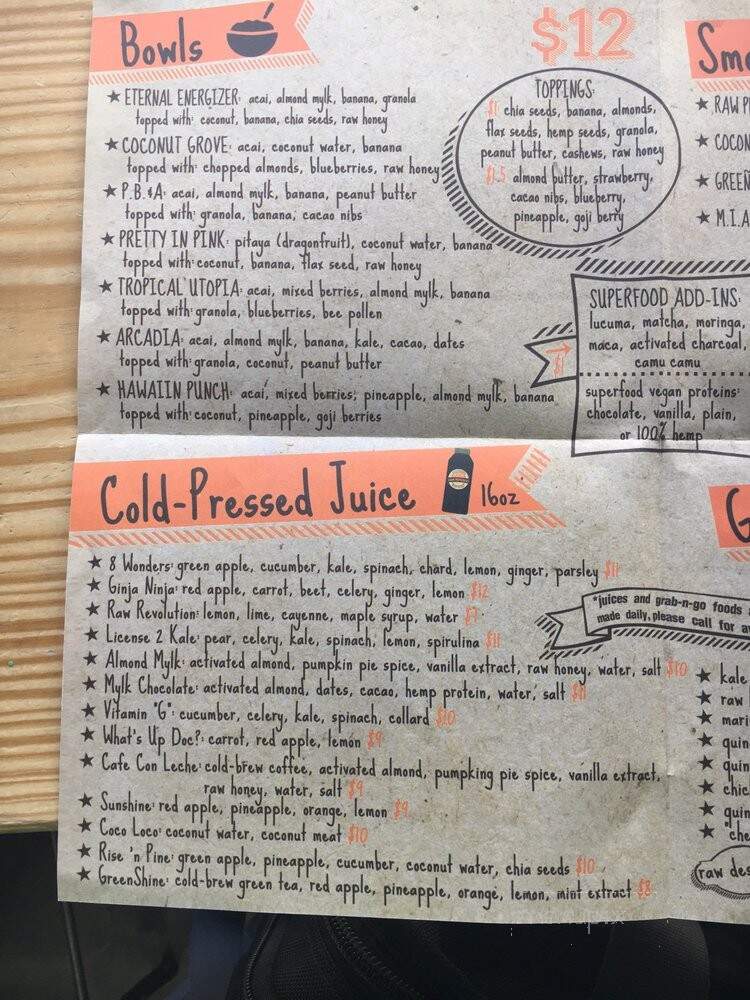 Bowls
$12
★ ETERNAL ENERGIZER: acai, almond mylk, banana, granola
topped with: coconut, banana, chia seeds, raw honey
★ COCONUT GROVE: acai, coconut water, banana
topped with: chopped almonds, blueberries, raw honey
★ P.B.&A: acai, almond mylk, banana, peanut butter
topped with: granola, banana, cacao nibs
★ PRETTY IN PINK: pitaya (dragonfruit), coconut water, banana
topped with: coconut, banana, flax seed, raw honey
★ TROPICAL UTOPIA: acai, mixed berries, almond mylk, banana
topped with: granola, blueberries, bee pollen
★ ARCADIA: acai, almond mylk, banana, kale, cacao, dates
topped with: granola, coconut, peanut butter
★ HAWAIIN PUNCH: acai, mixed berries, pineapple, almond mylk, banana
topped with: coconut, pineapple, goji berries
TOPPINGS:
$1 chia seeds, banana, almonds,
flax seeds, hemp seeds, granola,
peanut butter, cashews, raw honey
$1.5 almond butter, strawberry,
cacao nibs, blueberry,
pineapple, goji berry
Smo
★ RAW P
★ COCON
★ GREEN
★ M.I.A
SUPERFOOD ADD-INS:
lucuma, matcha, moringa,
maca, activated charcoal,
camu camu
$1
superfood vegan proteins:
chocolate, vanilla, plain,
or 100% hemp
Cold-Pressed Juice 16oz
★ 8 Wonders: green apple, cucumber, kale, spinach, chard, lemon, ginger, parsley $11
★ Ginja Ninja: red apple, carrot, beet, celery, ginger, lemon $12
★ Raw Revolution: lemon, lime, cayenne, maple syrup, water $7
★ License 2 Kale: pear, celery, kale, spinach, lemon, spirulina $11
★ Almond Mylk: activated almond, pumpkin pie spice, vanilla extract, raw honey, water, salt $10
★ Mylk Chocolate: activated almond, dates, cacao, hemp protein, water, salt $11
★ Vitamin "G": cucumber, celery, kale, spinach, collard $10
★ What's Up Doc?: carrot, red apple, lemon $9
★ Cafe Con Leche: cold-brew coffee, activated almond, pumpking pie spice, vanilla extract,
raw honey, water, salt $9
★ Sunshine: red apple, pineapple, orange, lemon $9
★ Coco Loco: coconut water, coconut meat $10
★ Rise 'n Pine: green apple, pineapple, cucumber, coconut water, chia seeds $10
★ GreenShine: cold-brew green tea, red apple, pineapple, orange, lemon, mint extract $8
G
*juices and grab-n-go foods
made daily, please call for av
★ kale
★ raw
★ mari
★ quin
★ quin
★ chic
★ quin
★ "che
raw des